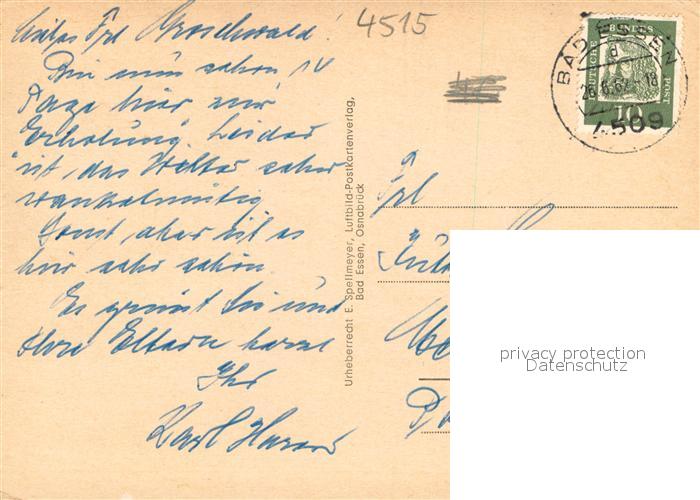 4515
Frl Groschwald!
Bin nun schon 14
Tage hier zur
Erholung. Leider
ist das Wetter sehr
wankelmütig
Sonst aber ist es
hier sehr schön.
Es grüsst Sie und
Ihre Eltern herzl
Ihr
Karl
Urheberrecht E. Spellmeyer, Luftbild-Postkartenverlag,
Bad Essen, Osnabrück
DEUTSCHE BUNDESPOST
10
BAD ESSEN
d
26.6.62-18
4509
Frl
privacy protection
Datenschutz